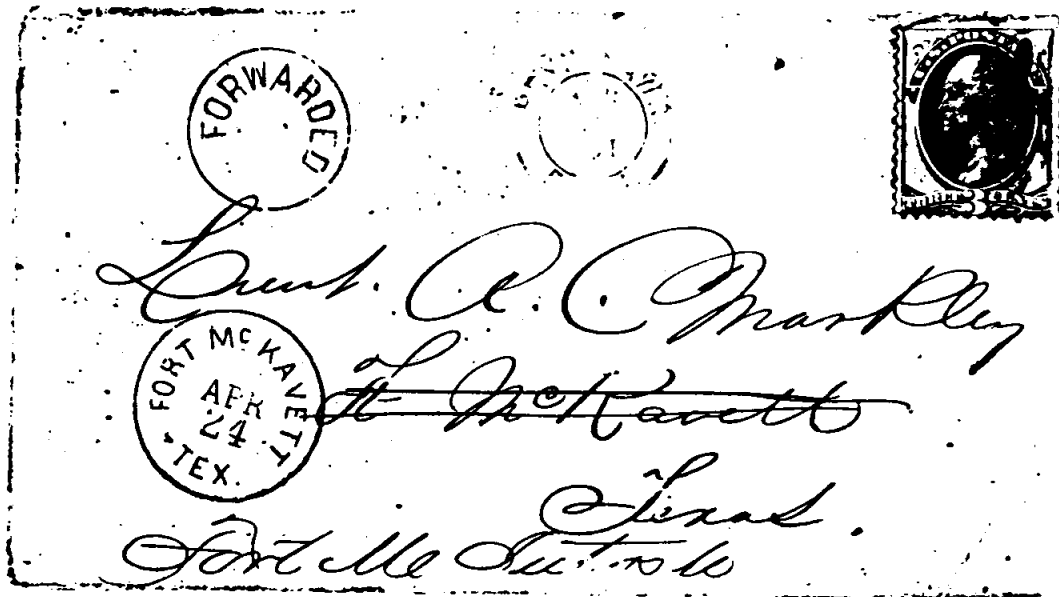 FORWARDED
THREE 3 CENTS
Lieut. A. C. Markley
FORT McKAVETT
APR
24
TEX.
Ft McKavett
Texas.
Fort McIntosh